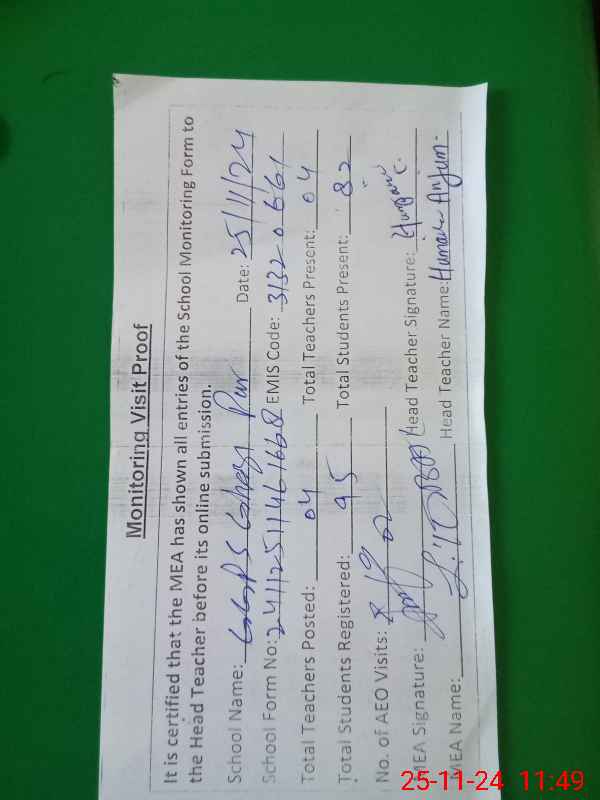 Monitoring Visit Proof
It is certified that the MEA has shown all entries of the School Monitoring Form to
the Head Teacher before its online submission.
School Name: Pur Date: 25/11/24
School Form No: EMIS Code: 31320661
Total Teachers Posted: 04 Total Teachers Present: 04
Total Students Registered: 95 Total Students Present: 82
No. of AEO Visits: 02
MEA Signature: Head Teacher Signature:
MEA Name: Head Teacher Name: Humaira Anjum.
25-11-24 11:49